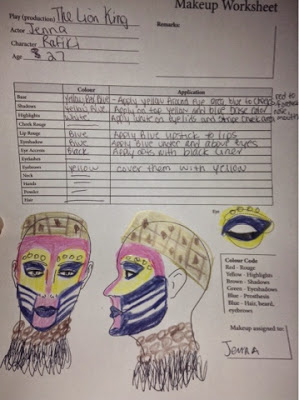 Makeup Worksheet
Play (production) The Lion King
Actor Jenna
Character Rafiki
Age $ 27
Remarks:
Colour Application
Base Yellow Red Blue - Apply yellow around eye area, blue to cheeks and red to forehead
Shadows Yellow Blue Apply on top yellow and blue base color nose
Highlights White Apply white on eye lids and stripe cheek area mouth
Cheek Rouge
Lip Rouge Blue Apply Blue Lipstick to Lips
Eyeshadow Blue Apply Blue under and above eyes
Eye Accents Black Apply dots with black liner
Eyelashes
Eyebrows Yellow cover them with yellow
Neck
Hands
Powder
Hair
Eye
Colour Code
Red - Rouge
Yellow - Highlights
Brown - Shadows
Green - Eyeshadows
Blue - Prosthesis
Blue - Hair, beard,
eyebrows
Makeup assigned to:
Jenna